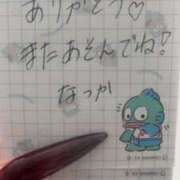 ありがとう♡
またあそんでね!
なつか